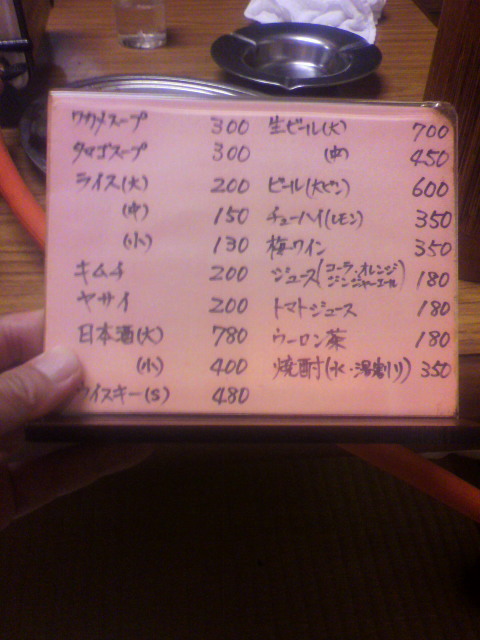 ワカメスープ 300
タマゴスープ 300
ライス(大) 200
(中) 150
(小) 130
キムチ 200
ヤサイ 200
日本酒(大) 780
(小) 400
ウイスキー(S) 480
生ビール(大) 700
(中) 450
ビール(大ビン) 600
チューハイ(レモン) 350
梅ワイン 350
ジュース(コーラ・オレンジ
ジンジャーエール) 180
トマトジュース 180
ウーロン茶 180
焼酎(水・湯割り) 350